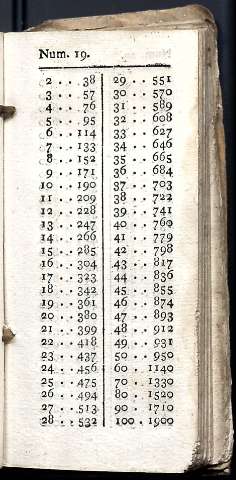 Num. 19.
2 . . 38 29 . . 551
3 . . 57 30 . . 570
4 . . 76 31 . . 589
5 . . 95 32 . . 608
6 . . 114 33 . . 627
7 . . 133 34 . . 646
8 . . 152 35 . . 665
9 . . 171 36 . . 684
10 . . 190 37 . . 703
11 . . 209 38 . . 722
12 . . 228 39 . . 741
13 . . 247 40 . . 760
14 . . 266 41 . . 779
15 . . 285 42 . . 798
16 . . 304 43 . . 817
17 . . 323 44 . . 836
18 . . 342 45 . . 855
19 . . 361 46 . . 874
20 . . 380 47 . . 893
21 . . 399 48 . . 912
22 . . 418 49 . . 931
23 . . 437 50 . . 950
24 . . 456 60 . . 1140
25 . . 475 70 . . 1330
26 . . 494 80 . . 1520
27 . . 513 90 . . 1710
28 . . 532 100 . 1900